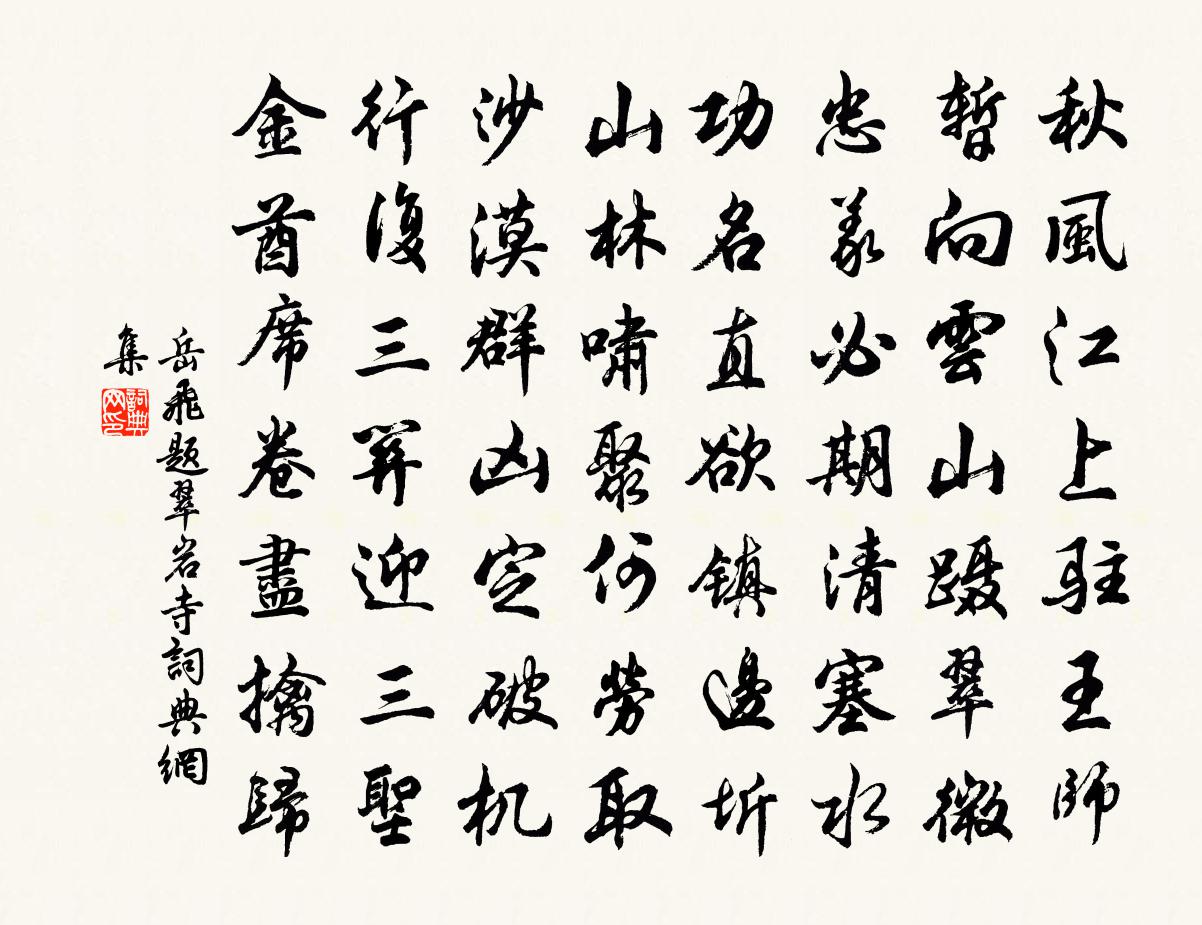 秋風江上駐王師
暫向雲山躡翠微
忠義必期清塞水
功名直欲鎮邊圻
山林嘯聚何勞取
沙漠群凶定破机
行復三關迎三聖
金酋席卷盡擒歸
岳飛題翠岩寺詞典網
集
詞典网印